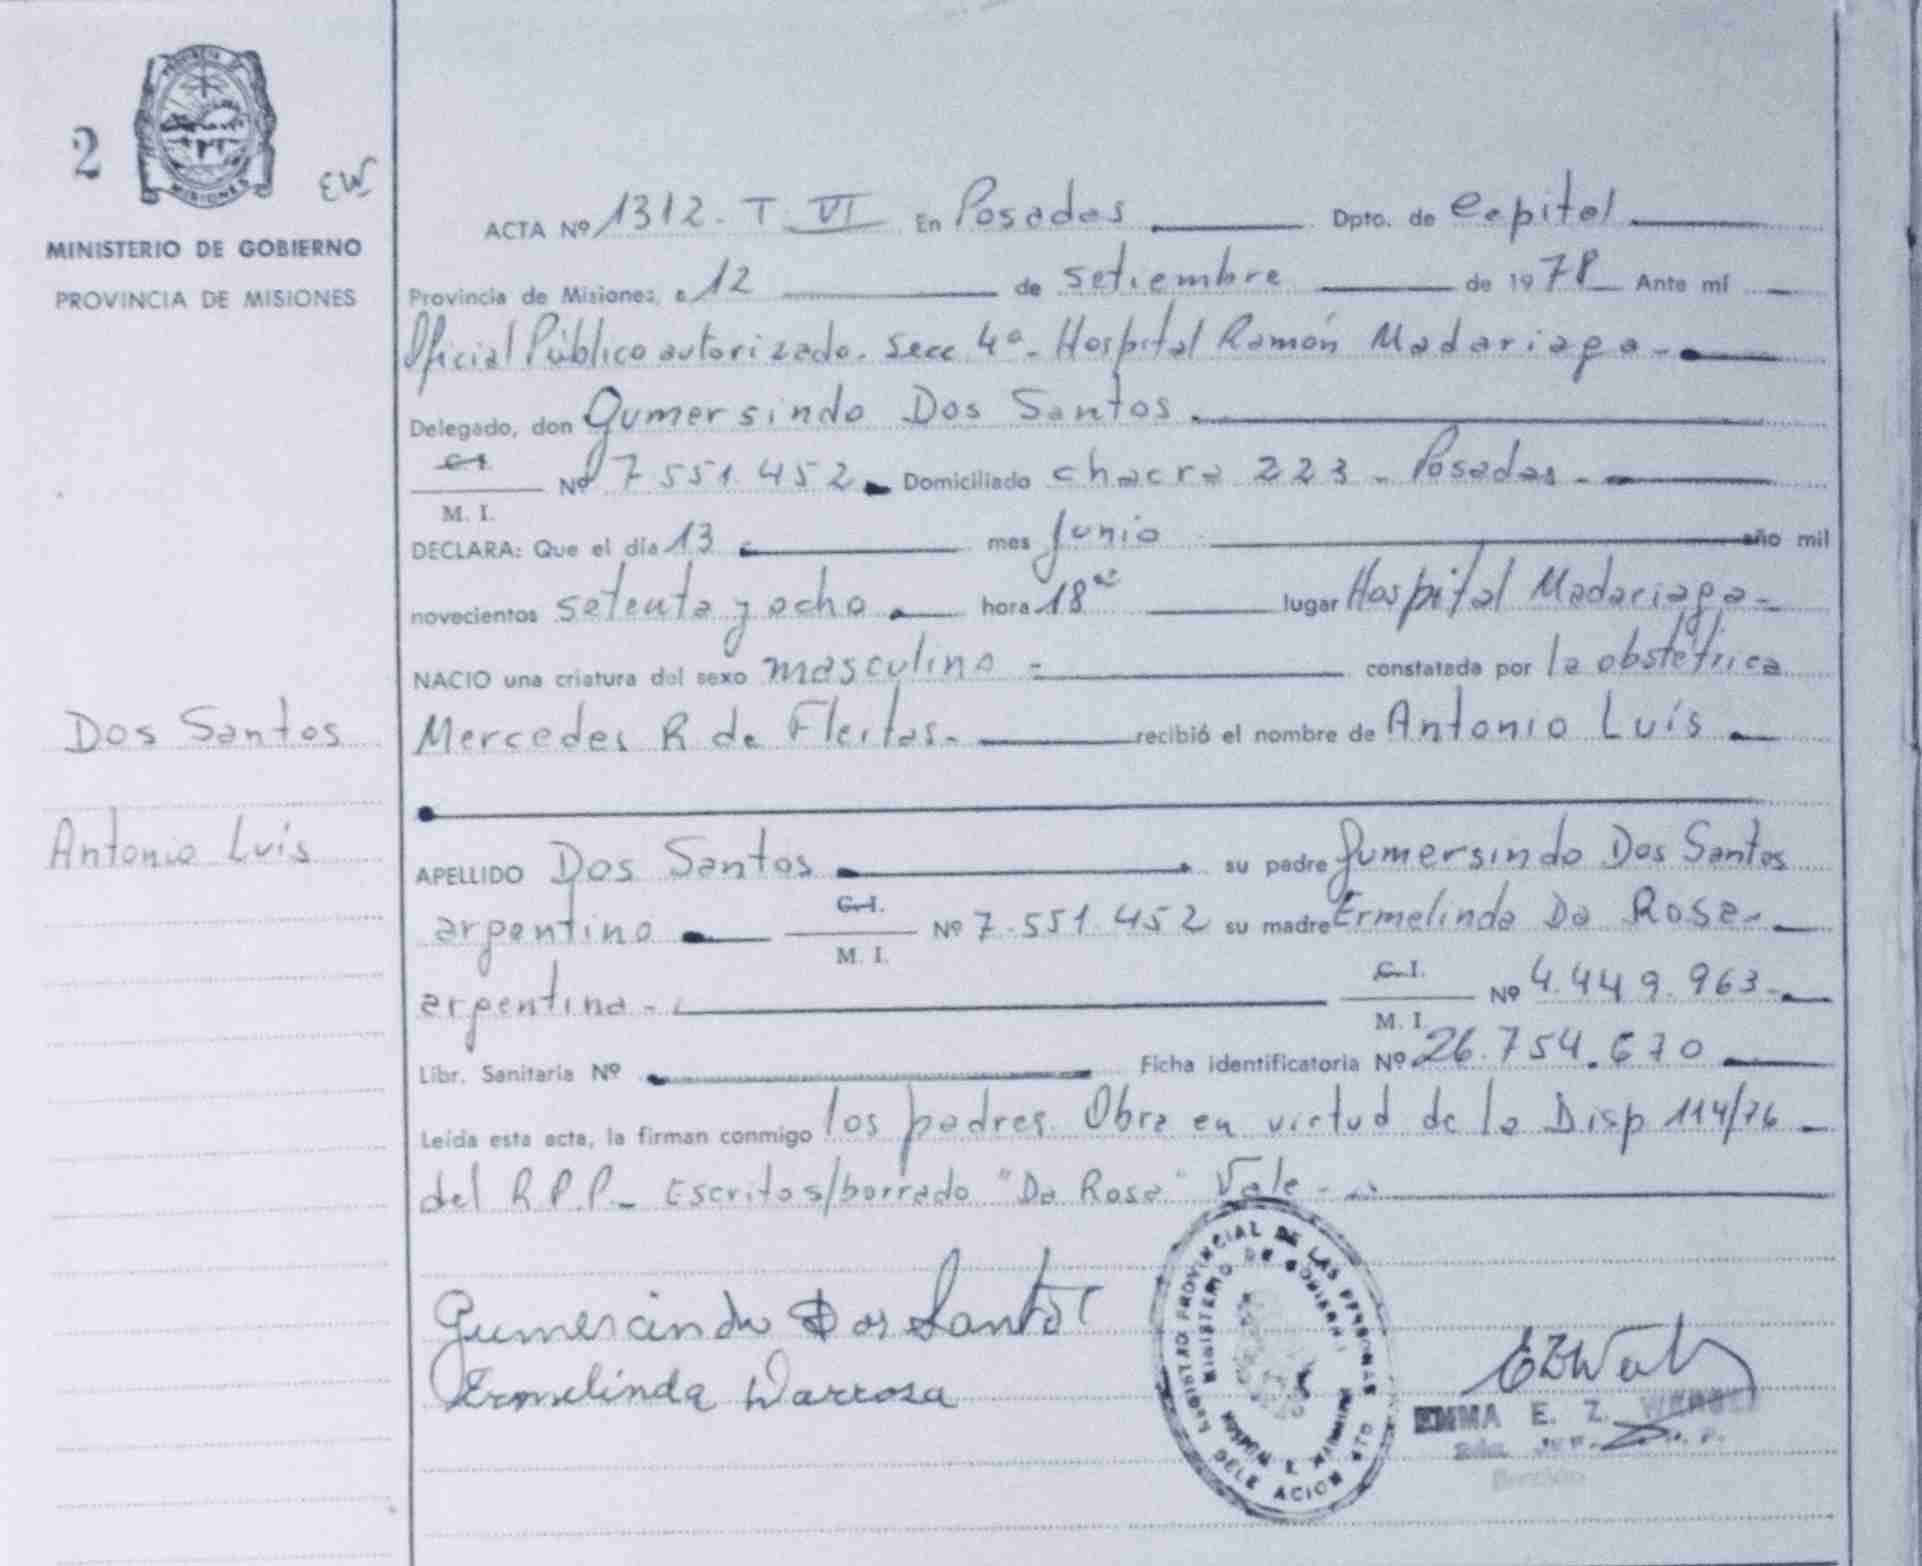 2
PROVINCIA DE
MISIONES
EW
MINISTERIO DE GOBIERNO
PROVINCIA DE MISIONES
Dos Santos
Antonio Luís
ACTA Nº 1312. T VI En Posadas Dpto. de Capital
Provincia de Misiones, a 12 de setiembre de 1978 Ante mí
Oficial Público autorizado. Secc. 4ª. Hospital Ramón Madariaga
Delegado, don Gumersindo Dos Santos
C.I.
Nº 7 551.452 Domiciliado chacra 223 - Posadas -
M. I.
DECLARA: Que el día 13 mes Junio año mil
novecientos setenta y ocho hora 18 lugar Hospital Madariaga -
NACIO una criatura del sexo masculino - constatada por la obstétrica
Mercedes R de Fleitas - recibió el nombre de Antonio Luís
APELLIDO Dos Santos su padre Gumersindo Dos Santos
C.I.
argentino Nº 7.551.452 su madre Ermelinda Da Rosa -
M. I.
C.I.
argentina - Nº 4.449.963 -
M. I.
Libr. Sanitaria Nº Ficha identificatoria Nº 26.754.670
Leída esta acta, la firman conmigo los padres. Obra en virtud de la Disp 114/76 -
del R.P.P - Escritos/borrado "Da Rosa" Vale -
Gumersindo Dos Santos
Ermelinda Darrosa
PROVINCIAL DE LAS PERSONAS
MINISTERIO DE GOBIERNO
EMMA E. Z.